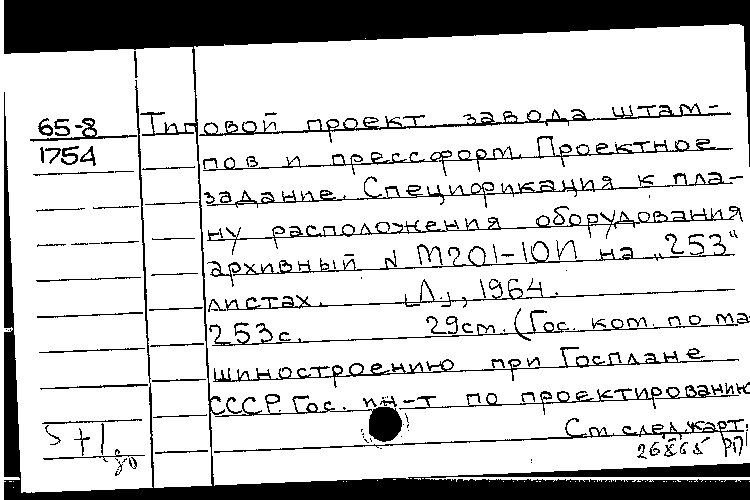 65-8 Типовой проект завода штам-
1754 пов и прессформ. Проектное
задание. Спецификация к пла-
ну расположения оборудования
архивный N М201-10И на „253“
листах. [Л.], 1964.
253с. 29см. (Гос. ком. по ма-
шиностроению при Госплане
СССР. Гос. ин-т по проектированию
См. след.карт.